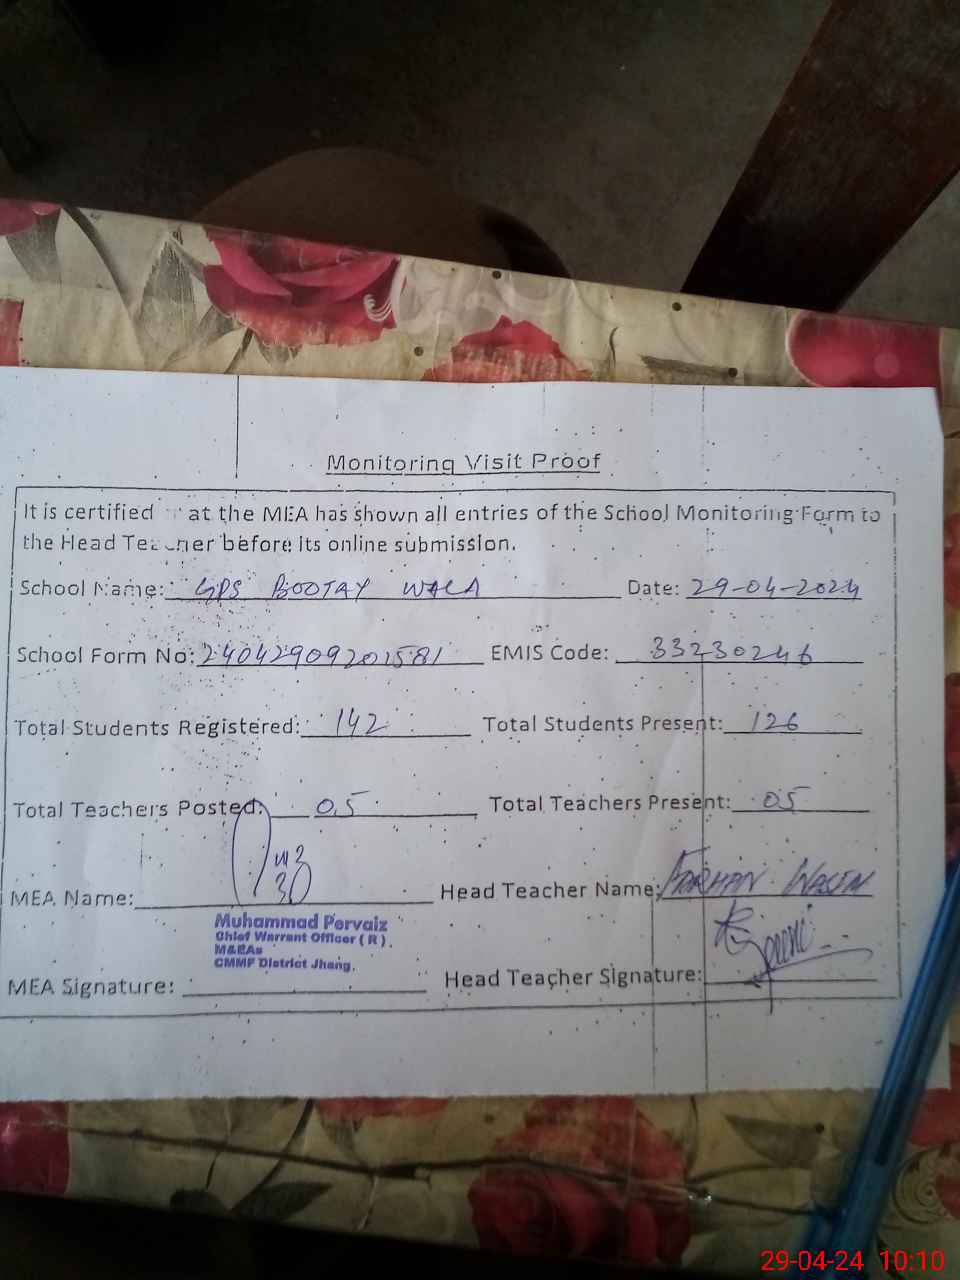 Monitoring Visit Proof
It is certified at the MEA has shown all entries of the School Monitoring Form to
the Head Teacher before its online submission.
School Name: GPS BOOTAY WALA Date: 29-04-2024
School Form No: 24042909201581 EMIS Code: 33230246
Total Students Registered: 142 Total Students Present: 126
Total Teachers Posted: 05 Total Teachers Present: 05
MEA Name: Head Teacher Name: FARHAN
Muhammad Pervaiz
Chief Warrant Officer ( R )
M&EAs
CMMF District Jhang.
MEA Signature: Head Teacher Signature:
29-04-24 10:10